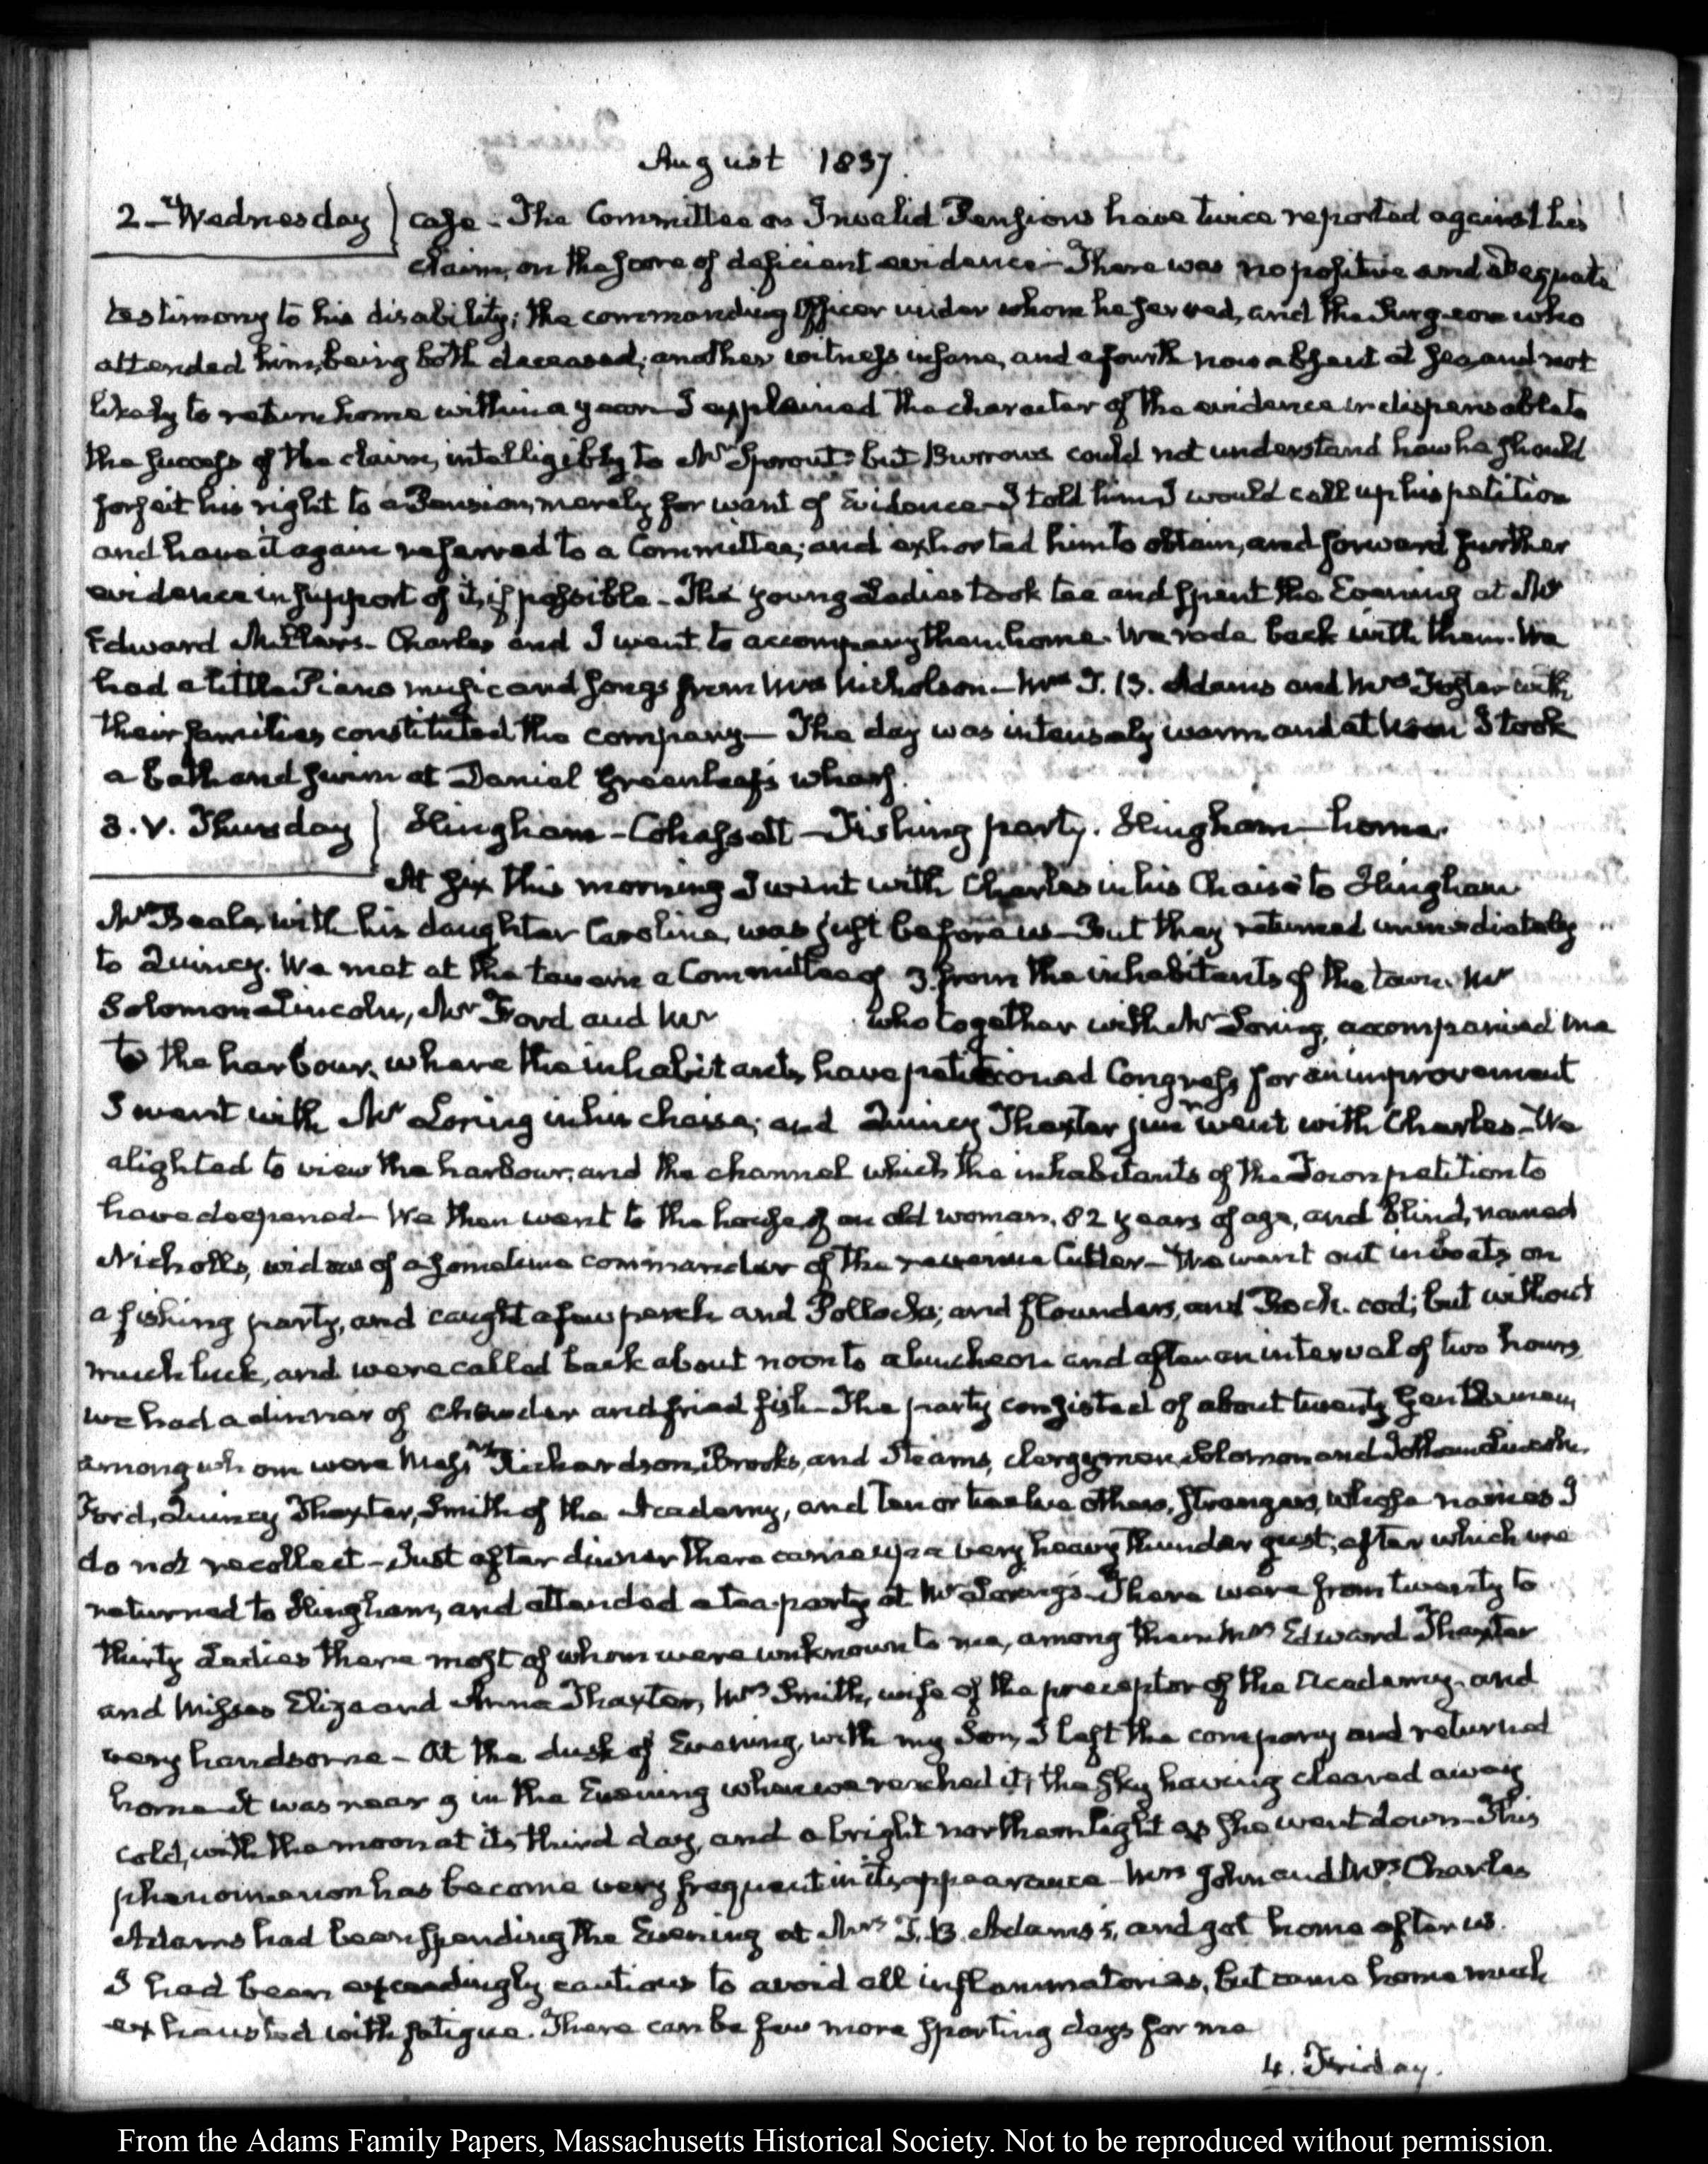 August 1837.
2_ Wednesday } case - The Committee on Invalid Pensions have twice reported against his
claim, on the score of deficient evidence - There was no positive and adequate
testimony to his disability; the commanding Officer under whom he served, and the Surgeon who
attended him, being both deceased; another witness insane, and a fourth now absent at sea, and not
likely to return home within a year - I explained the character of the evidence indispensable to
the success of the claim, intelligibly to Mr Sprout: but Burrows could not understand how he should
forfeit his right to a Pension, merely for want of Evidence - I told him I would call up his petition
and have it again referred to a Committee; and exhorted him to obtain, and forward further
evidence in support of it, if possible - The young Ladies took tea and spent the Evening at Mr
Edward Miller's - Charles and I went to accompany them home. We rode back with them. We
had a little Piano music and songs from Mrs Nicholson - Mrs T. B. Adams and Mrs Foster with
their families constituted the company - The day was intensely warm and at Noon I took
a bath and swim at Daniel Greenleaf's wharf.
3. V. Thursday } Hingham - Cohassett - Fishing party. Hingham - home.
At six this morning I went with Charles in his Chaise to Hingham
Mr Beale, with his daughter Caroline, was just before us - But they returned immediately
to Quincy. We met at the tavern a Committee of 3 from the inhabitants of the town. Mr
Solomon Lincoln, Mr Ford and Mr who together with Mr Loring, accompanied me
to the harbour, where the inhabitants have petitioned Congress for an improvement
I went with Mr Loring in his chaise; and Quincy Thaxter junr went with Charles - We
alighted to view the harbour, and the channel which the inhabitants of the Town petition to
have deepened - We then went to the house of an old woman, 82 years of age, and blind, named
Nicholls, widow of a sometime commander of the revenue Cutter - We went out in boats on
a fishing party, and caught a few perch and Pollocks; and flounders, and Rock-cod; but without
much luck, and were called back about noon to a luncheon and after an interval of two hours
we had a dinner of chowder and fried fish - The party consisted of about twenty Gentlemen,
among whom were Messrs Richardson, Brooks, and Stearns, clergymen, Solomon and Jotham Lincoln,
Ford, Quincy Thaxter, Smith of the Academy, and ten or twelve others, strangers, whose names I
do not recollect - Just after dinner there came up a very heavy thunder gust, after which we
returned to Hingham, and attended a tea-party at Mr Loring's - There were from twenty to
thirty Ladies there most of whom were unknown to me, among them Mrs Edward Thaxter
and Misses Eliza and Anna Thaxter, Mrs Smith, wife of the preceptor of the Academy, and
very handsome - At the dusk of Evening, with my Son, I left the company and returned
home - It was near 9 in the Evening when we reached it; the sky having cleared away
cold, with the moon at its third day, and a bright northern light as she went down - This
phenomenon has become very frequent in its appearance - Mrs John and Mrs Charles
Adams had been spending the Evening at Mrs T. B. Adams's, and got home after us.
I had been exceedingly cautious to avoid all inflammatories, but came home much
exhausted with fatigue. There can be few more sporting days for me
4. Friday.
From the Adams Family Papers, Massachusetts Historical Society. Not to be reproduced without permission.